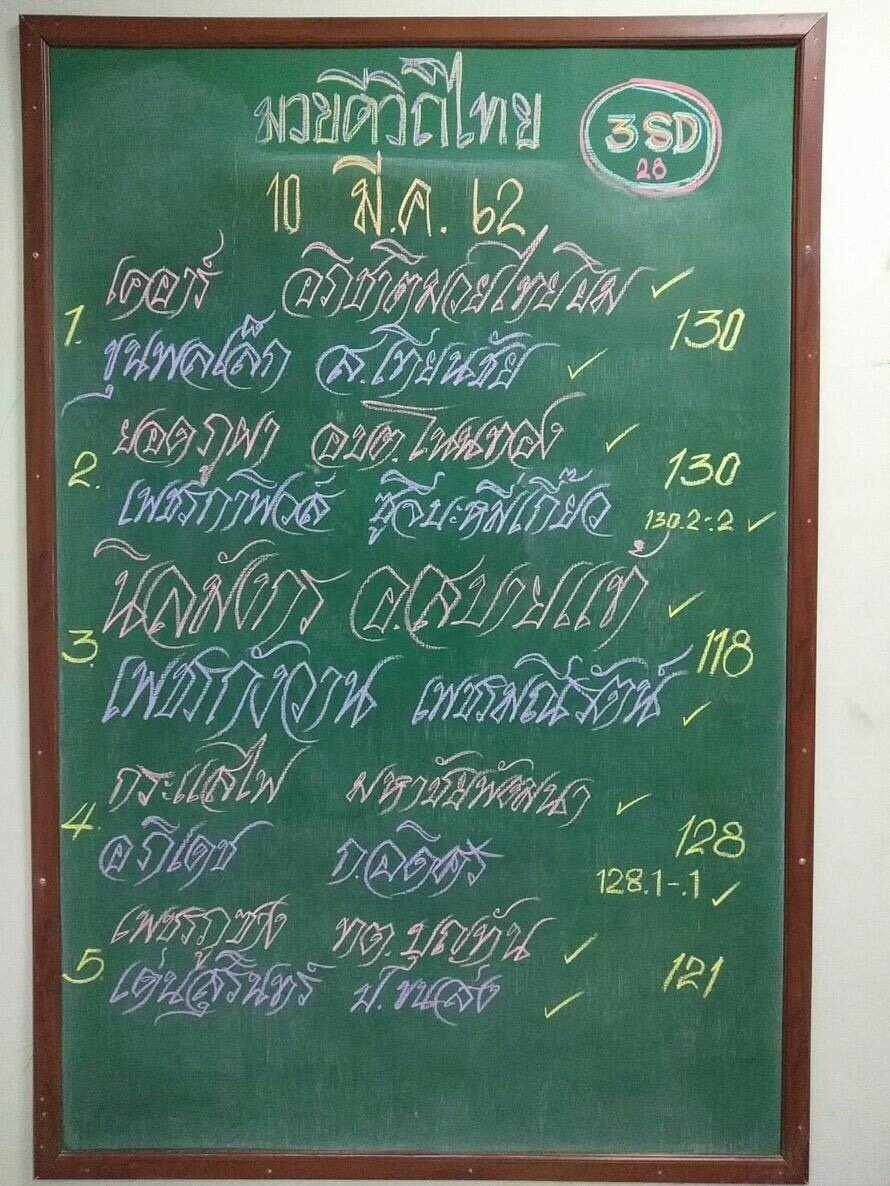 มวยดีวิถีไทย
3SD
28
10 มี.ค. 62
1.
เคอาร์ อภิชาติมวยไทยยิม ✓
130
ขุนพลเล็ก ส.เทียนชัย ✓
2.
ยอดภูผา อบต.โนนทอง ✓
130
เพชรกาฬวงส์ ซูจีบะหมี่เกี๊ยว
130.2-.2 ✓
3.
นิลมังกร อ.สบายแท้ ✓
118
เพชรกังวาน เพชรมณีรัตน์ ✓
4.
กระแสไฟ มหาชัยพัฒนา ✓
128
อภิเดช ก.อดิศร
128.1-.1 ✓
5.
เพชรภูซาง ทต.บุญทัน ✓
121
เด่นสุรินทร์ ป.ขนส่ง ✓